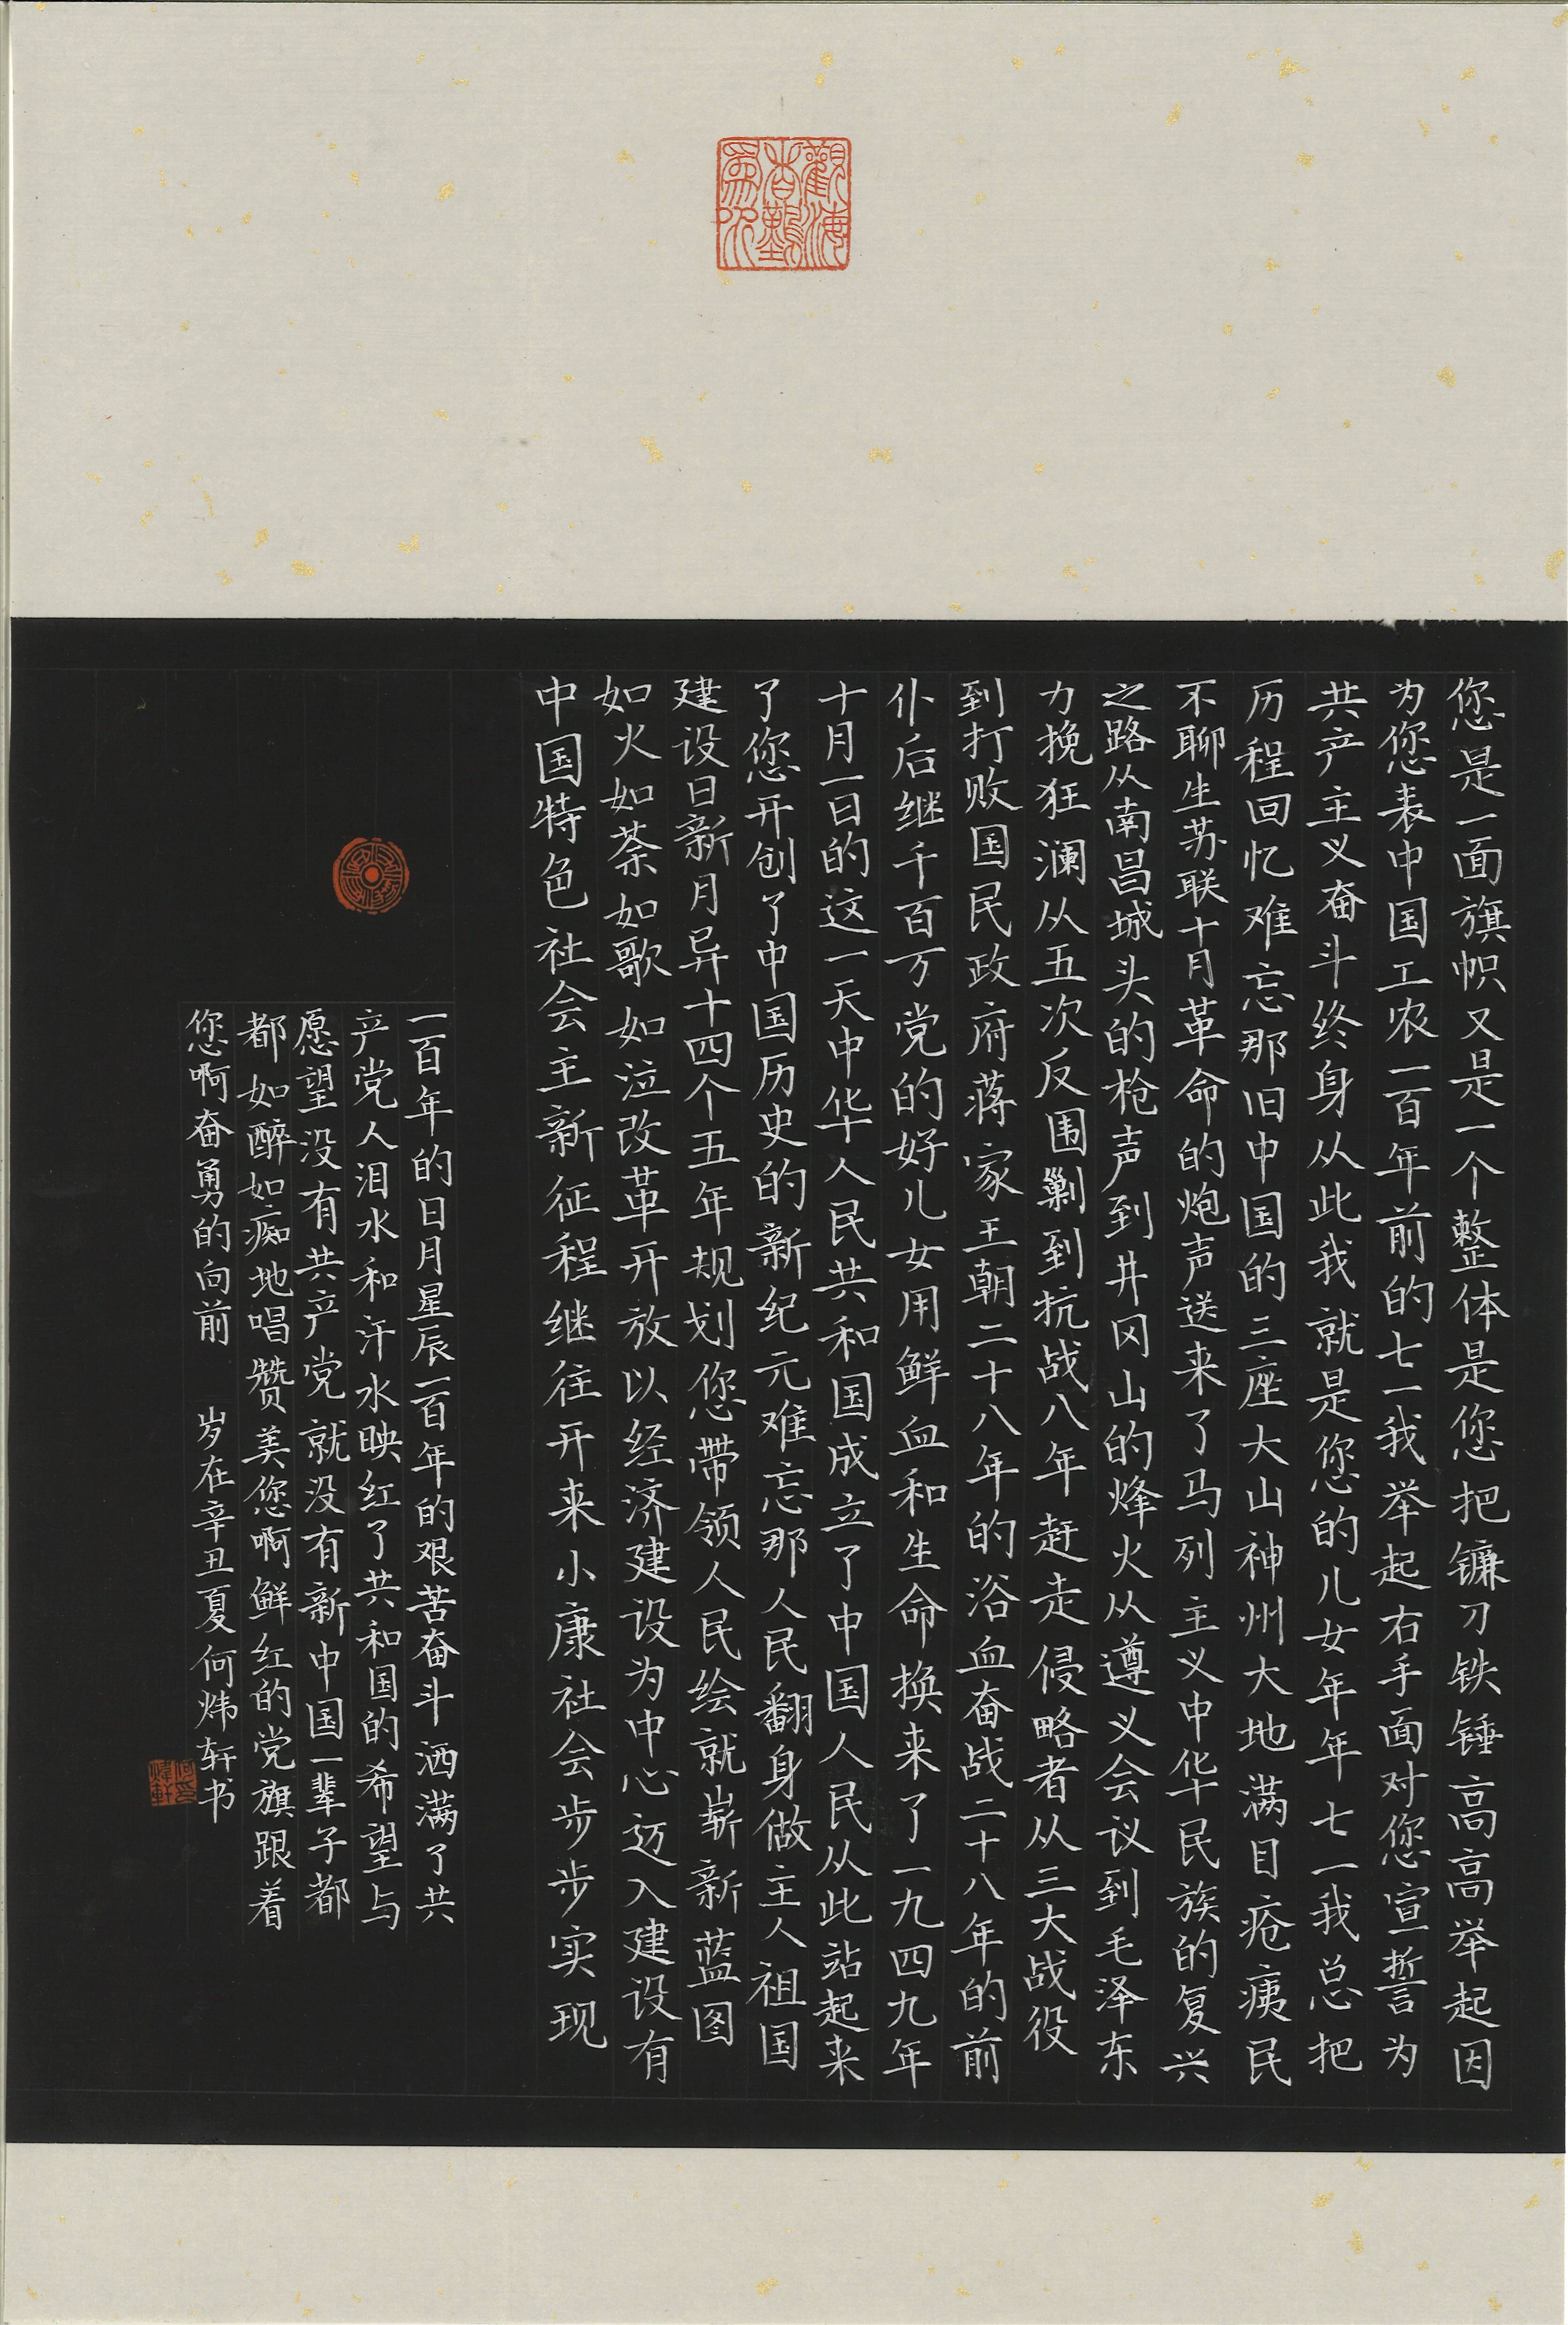 您是一面旗帜又是一个整体是您把镰刀铁锤高高举起因
为您表中国工农一百年前的七一我举起右手面对您宣誓为
共产主义奋斗终身从此我就是您的儿女年年七一我总把
历程回忆难忘那旧中国的三座大山神州大地满目疮痍民
不聊生苏联十月革命的炮声送来了马列主义中华民族的复兴
之路从南昌城头的枪声到井冈山的烽火从遵义会议到毛泽东
力挽狂澜从五次反围剿到抗战八年赶走侵略者从三大战役
到打败国民政府蒋家王朝二十八年的浴血奋战二十八年的前
仆后继千百万党的好儿女用鲜血和生命换来了一九四九年
十月一日的这一天中华人民共和国成立了中国人民从此站起来
了您开创了中国历史的新纪元难忘那人民翻身做主人祖国
建设日新月异十四个五年规划您带领人民绘就崭新蓝图
如火如荼如歌如泣改革开放以经济建设为中心迈入建设有
中国特色社会主新征程继往开来小康社会步步实现
一百年的日月星辰一百年的艰苦奋斗洒满了共
产党人泪水和汗水映红了共和国的希望与
愿望没有共产党就没有新中国一辈子都
都如醉如痴地唱赞美您啊鲜红的党旗跟着
您啊奋勇的向前 岁在辛丑夏何炜轩书